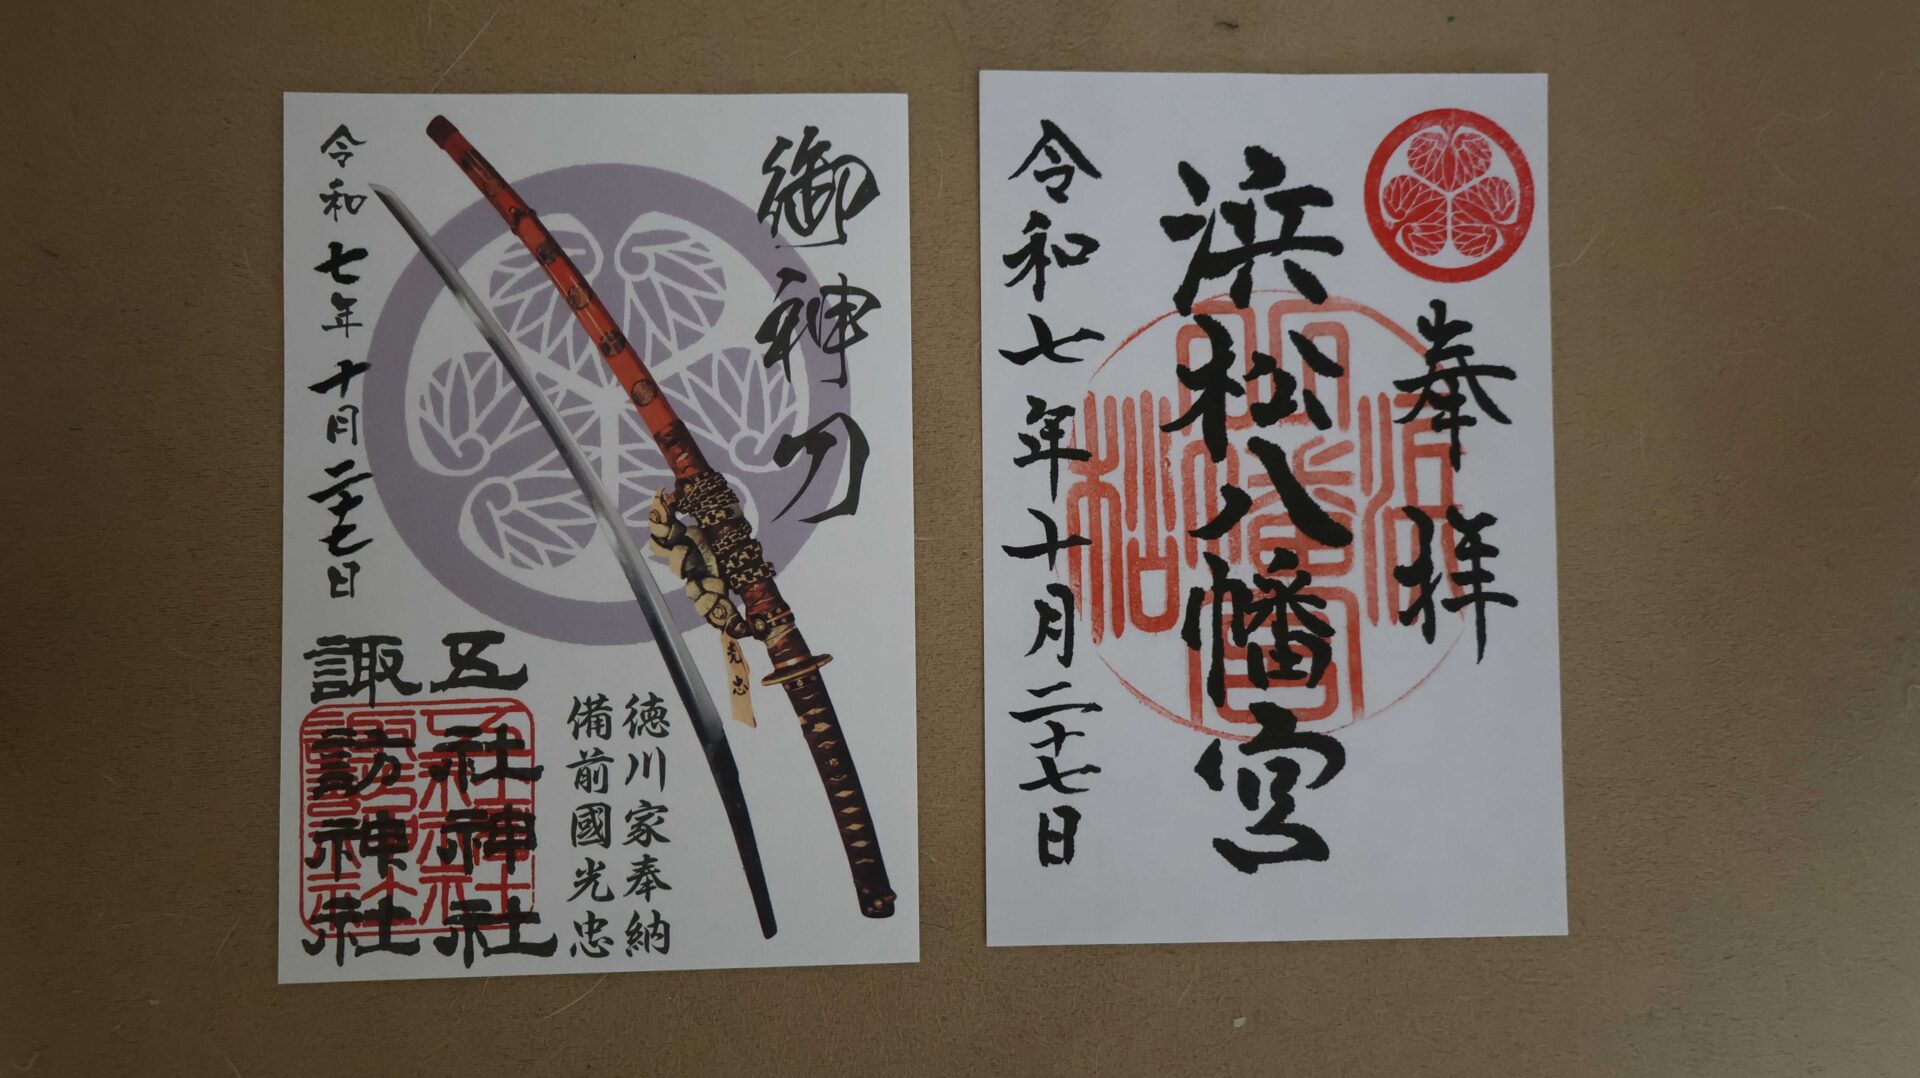 御神刀
徳川家奉納
備前國光忠
光忠
五社神社
諏訪神社
令和七年十月二十七日
奉拝
浜松八幡宮
令和七年十月二十七日